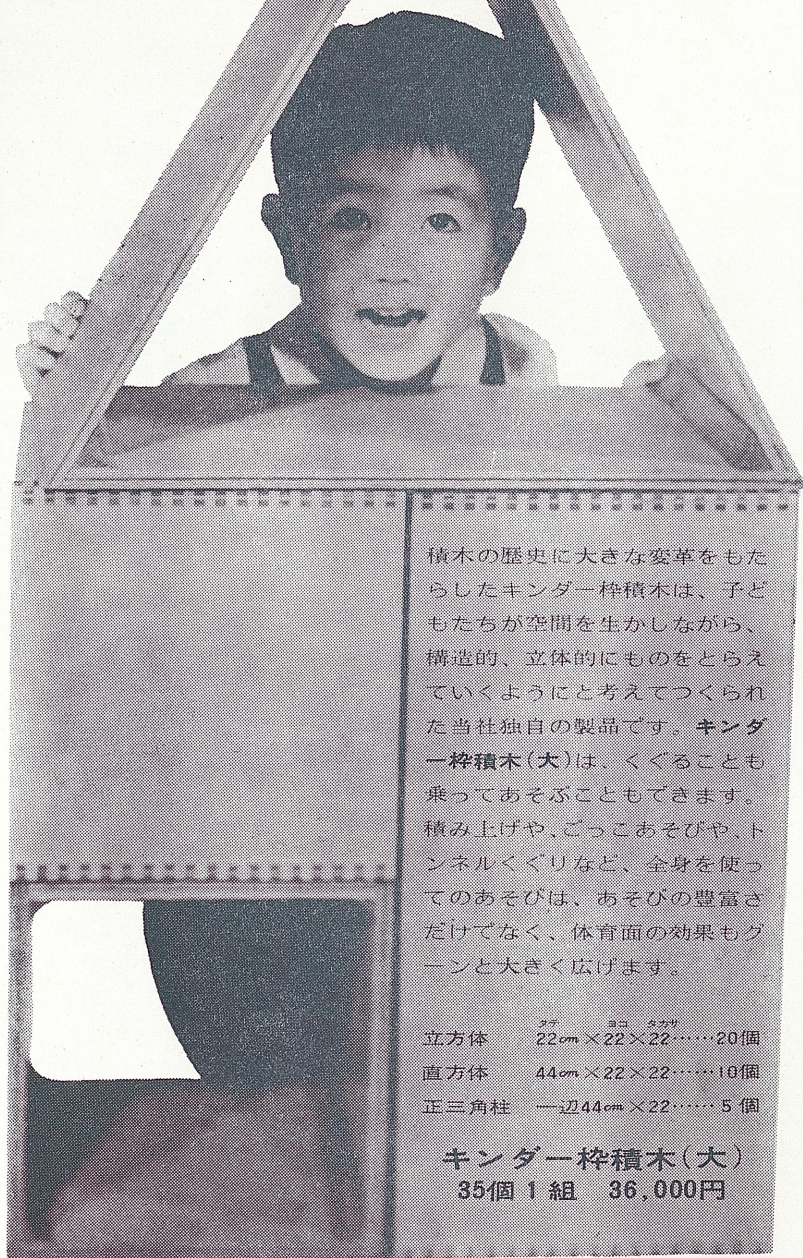 積木の歴史に大きな変革をもた
らしたキンダー枠積木は、子ど
もたちが空間を生かしながら、
構造的、立体的にものをとらえ
ていくようにと考えてつくられ
た当社独自の製品です。キンダ
ー枠積木(大)は、くぐることも
乗ってあそぶこともできます。
積み上げや、ごっこあそびや、ト
ンネルくぐりなど、全身を使っ
てのあそびは、あそびの豊富さ
だけでなく、体育面の効果もグ
ーンと大きく広げます。
タテ ヨコ タカサ
立方体 22cm×22×22……20個
直方体 44cm×22×22……10個
正三角柱 一辺44cm×22……5個
キンダー枠積木(大)
35個1組 36,000円